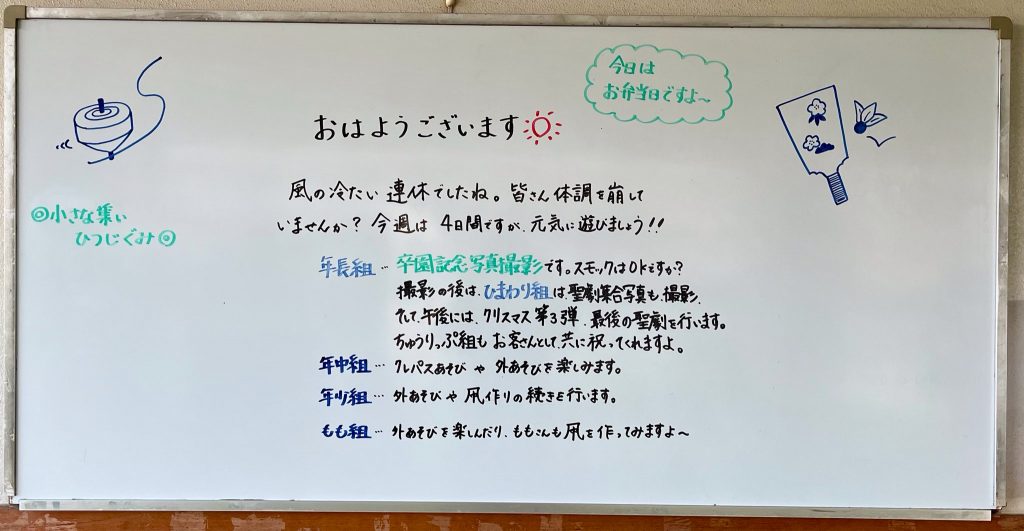 今日は
お弁当日ですよ～
おはようございます
◎小さな集い
ひつじぐみ◎
風の冷たい連休でしたね。皆さん体調を崩して
いませんか？今週は4日間ですが、元気に遊びましょう!!
年長組…卒園記念写真撮影です。スモックはOkですか？
撮影の後は、ひまわり組は聖劇集合写真も撮影。
そして、午後には、クリスマス第3弾、最後の聖劇を行います。
ちゅうりっぷ組もお客さんとして、共に祝ってくれますよ。
年中組…クレパスあそびや外あそびを楽しみます。
年少組…外あそびや凧作りの続きを行います。
もも組…外あそびを楽しんだり、ももさんも凧を作ってみますよ～